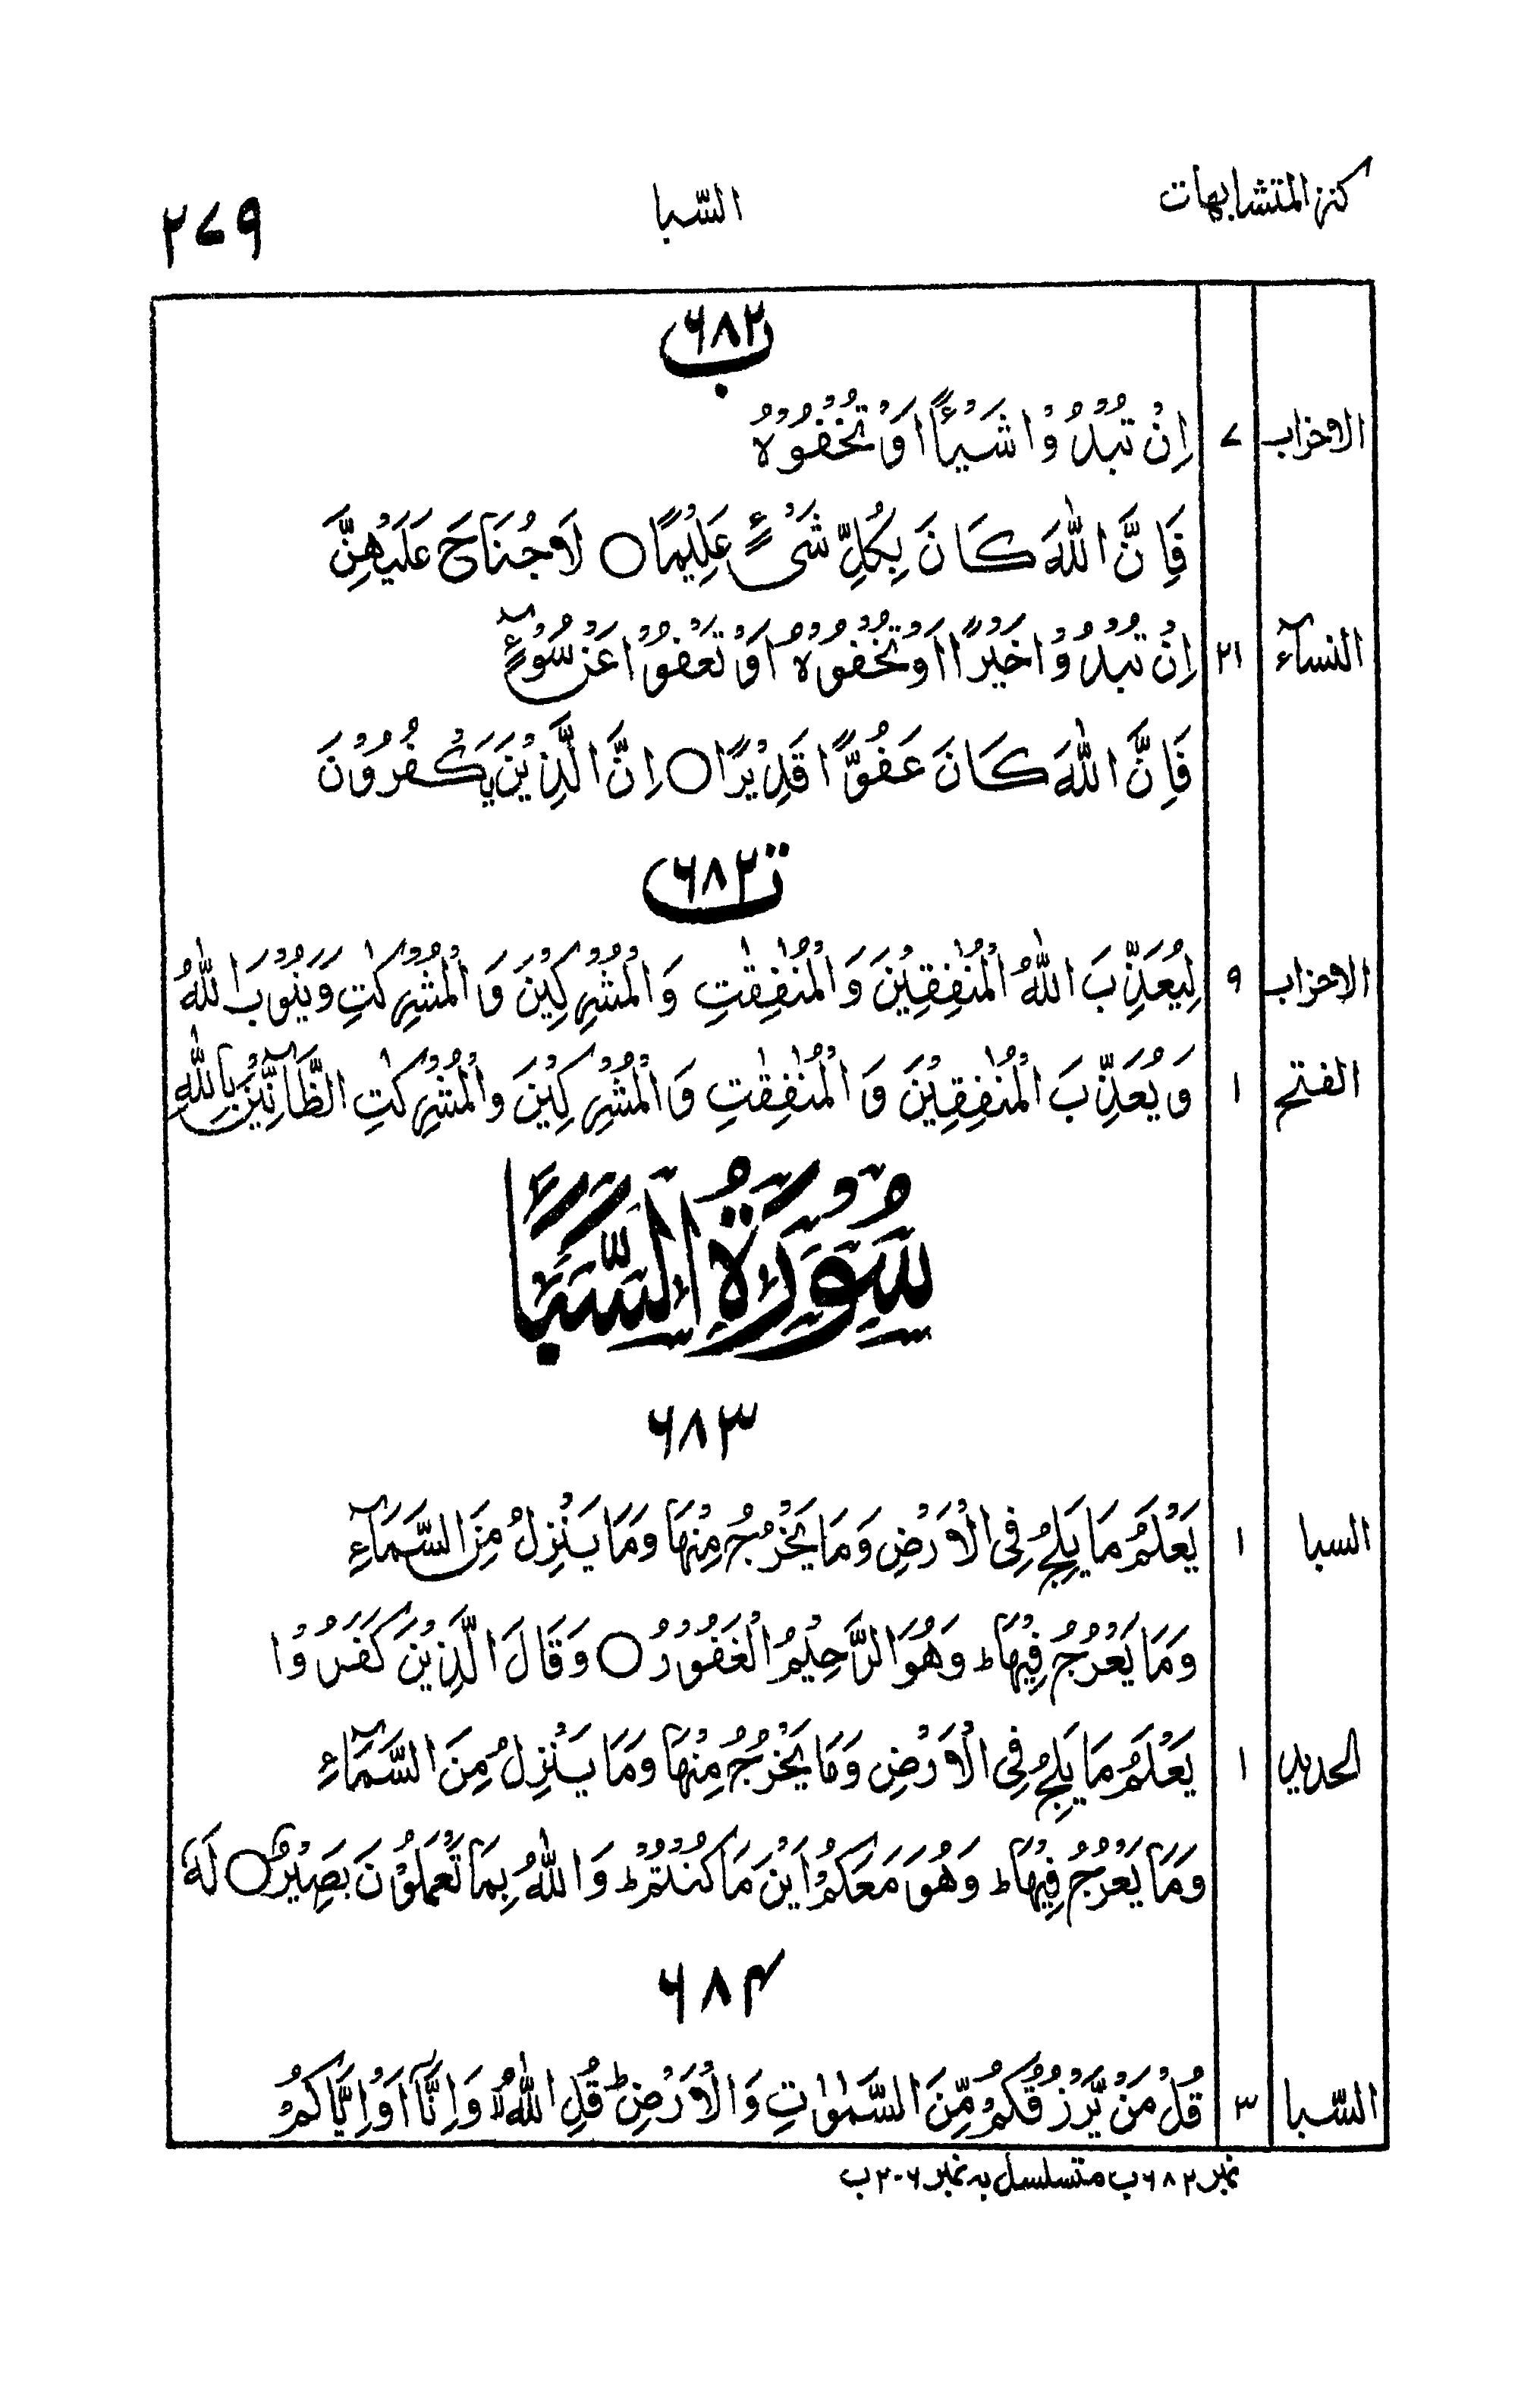 كنز المتشابهات السّبا ٢٧٩
٦٨٢ب
الاحزاب ٧ اِنْ تُبْدُوْا شَيْئًا اَوْ تُخْفُوْهُ
فَاِنَّ اللّٰهَ كَانَ بِكُلِّ شَىْءٍ عَلِيْمًا ○ لَاجُنَاحَ عَلَيْهِنَّ
النسآء ٢١ اِنْ تُبْدُوْا خَيْرًا اَوْ تُخْفُوْهُ اَوْ تَعْفُوْا عَنْ سُوْٓءٍ
فَاِنَّ اللّٰهَ كَانَ عَفُوًّا قَدِيْرًا ○ اِنَّ الَّذِيْنَ يَكْفُرُوْنَ
٦٨٢ت
الاحزاب ٩ لِيُعَذِّبَ اللّٰهُ الْمُنٰفِقِيْنَ وَالْمُنٰفِقٰتِ وَالْمُشْرِكِيْنَ وَالْمُشْرِكٰتِ وَيَتُوْبَ اللّٰهُ
الفتح ١ وَيُعَذِّبَ الْمُنٰفِقِيْنَ وَالْمُنٰفِقٰتِ وَالْمُشْرِكِيْنَ وَالْمُشْرِكٰتِ الظَّآنِّيْنَ بِاللّٰهِ
سُوْرَةُ السَّبَاً
٦٨٣
السبا ١ يَعْلَمُ مَا يَلِجُ فِى الْاَرْضِ وَمَا يَخْرُجُ مِنْهَا وَمَا يَنْزِلُ مِنَ السَّمَآءِ
وَمَا يَعْرُجُ فِيْهَا ؕ وَهُوَ الرَّحِيْمُ الْغَفُوْرُ ○ وَقَالَ الَّذِيْنَ كَفَرُوْا
الحديد ١ يَعْلَمُ مَا يَلِجُ فِى الْاَرْضِ وَمَا يَخْرُجُ مِنْهَا وَمَا يَنْزِلُ مِنَ السَّمَآءِ
وَمَا يَعْرُجُ فِيْهَا ؕ وَهُوَ مَعَكُمْ اَيْنَ مَا كُنْتُمْ ؕ وَاللّٰهُ بِمَا تَعْمَلُوْنَ بَصِيْرٌ ○ لَهٗ
٦٨٤
السّبا ٣ قُلْ مَنْ يَّرْزُقُكُمْ مِّنَ السَّمٰوٰتِ وَالْاَرْضِ ؕ قُلِ اللّٰهُ ۙ وَاِنَّآ اَوْ اِيَّاكُمْ
نمبر ٦٨٢ب متسلسل به نمبر ٢٠٦ب